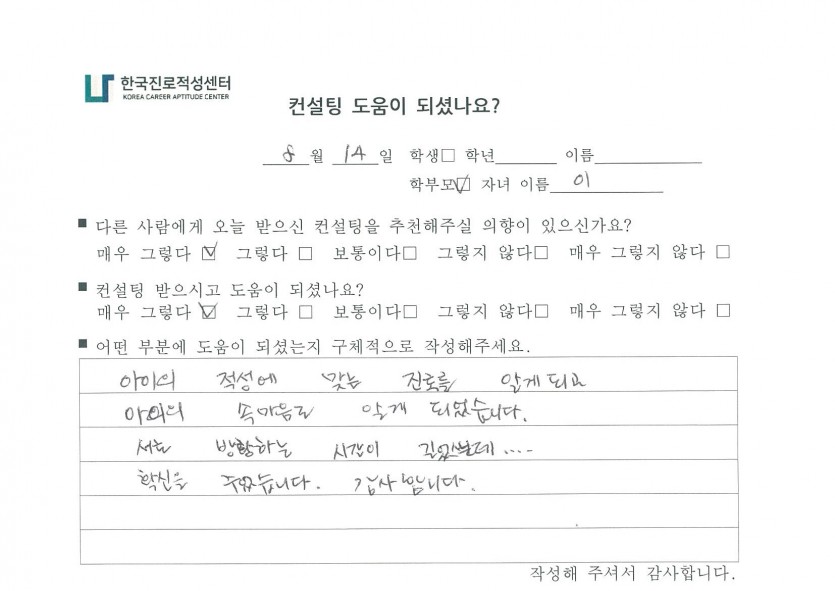 한국진로적성센터
KOREA CAREER APTITUDE CENTER
컨설팅 도움이 되셨나요?
8 월 14 일 학생□ 학년 이름
학부모☑ 자녀 이름 이
■ 다른 사람에게 오늘 받으신 컨설팅을 추천해주실 의향이 있으신가요?
매우 그렇다 ☑ 그렇다 □ 보통이다□ 그렇지 않다□ 매우 그렇지 않다 □
■ 컨설팅 받으시고 도움이 되셨나요?
매우 그렇다 ☑ 그렇다 □ 보통이다□ 그렇지 않다□ 매우 그렇지 않다 □
■ 어떤 부분에 도움이 되셨는지 구체적으로 작성해주세요.
아이의 적성에 맞는 진로를 알게 되고
아이의 속마음도 알게 되었습니다.
서로 방황하는 시간이 길었는데....
확신을 주었습니다. 감사합니다.
작성해 주셔서 감사합니다.